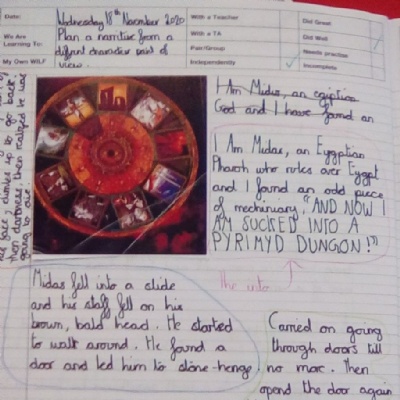 Date:
Wednesday 18th November 2020
With a Teacher
Did Great
We Are Learning To:
Plan a narrative from a
different characters point of
view.
With a TA
Did Well
Pair/Group
Needs practise
My Own WILF
Independently
Incomplete
face, climbs up to go back,
then darkness, then realized he was
going to die.
I Am Midas, an egiptian
God and I have found an
I Am Midas, an Eygptian
Pharoh who rules over Eygpt
and I found an odd piece
of mechiniary, "AND NOW I
AM SUCKED INTO A
PYRIMYD DUNGON!"
the into
Midas fell into a slide
and his staff fell on his
brown, bald head. He started
to walk around. He found a
door and led him to stone-henge.
Carried on going
through doors till
no more. Then
opend the door again